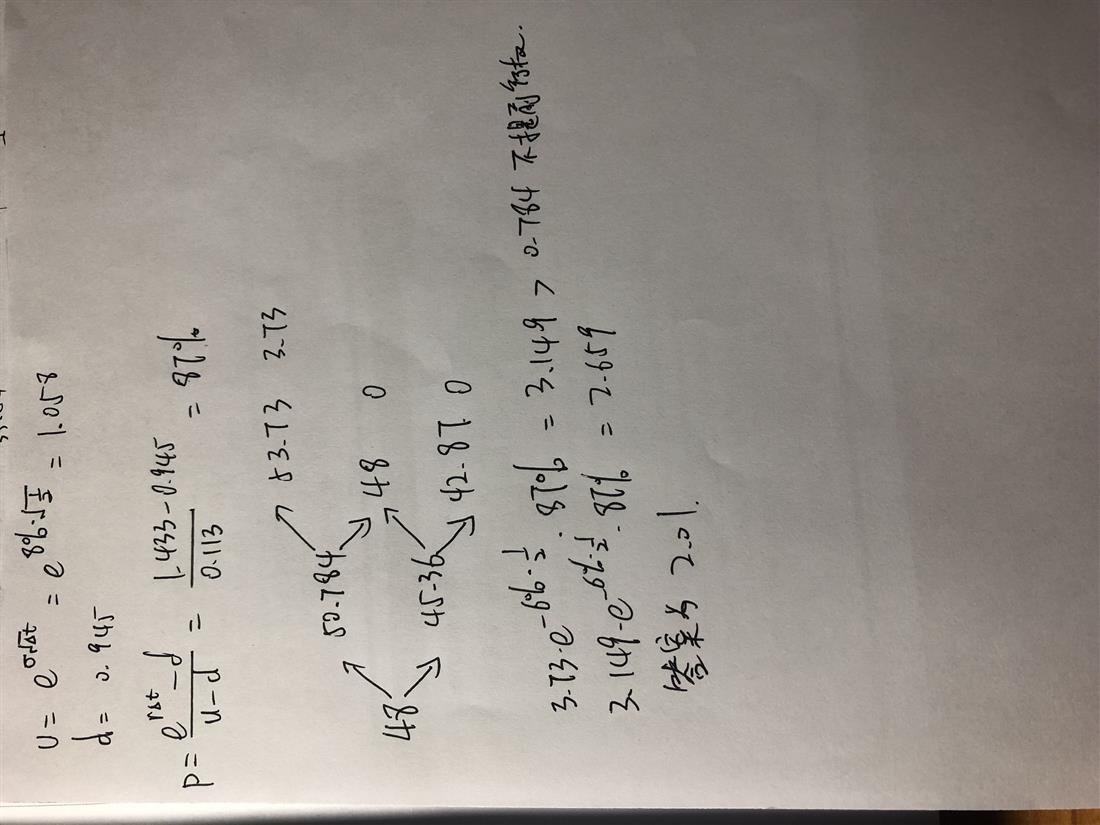 u = e^{σ√Δt} = e^{8%·√(1/2)} = 1.058
d = 0.945
p = (e^{rΔt} - d)/(u - d) = (1.433 - 0.945)/0.113 = 87%
53.73 3.73
50.784
48 48 0
45.36
42.87. 0
3.73·e^{-6%·1/2}·87% = 3.149 > 0.784 不提前行权.
3.149·e^{-6%·1/2}·87% = 2.659
答案为 2.01.